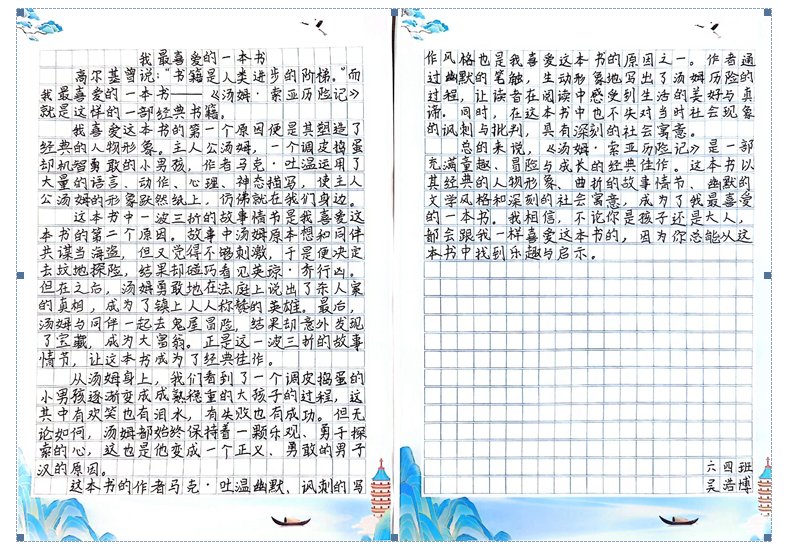 我最喜爱的一本书
高尔基曾说:“书籍是人类进步的阶梯。”而
我最喜爱的一本书——《汤姆·索亚历险记》
就是这样的一部经典书籍。
我喜爱这本书的第一个原因便是其塑造了
经典的人物形象。主人公汤姆,一个调皮捣蛋
却机智勇敢的小男孩,作者马克·吐温运用了
大量的语言、动作、心理、神态描写,使主人
公汤姆的形象跃然纸上,仿佛就在我们身边。
这本书中一波三折的故事情节是我喜爱这
本书的第二个原因。故事中汤姆原本想和同伴
共谋当海盗,但又觉得不够刺激,于是便决定
去坟地探险,结果却碰巧看见英琼·乔行凶。
但在之后,汤姆勇敢地在法庭上说出了杀人案
的真相,成为了镇上人人称赞的英雄。最后,
汤姆与同伴一起去鬼屋冒险,结果却意外发现
了宝藏,成为大富翁。正是这一波三折的故事
情节,让这本书成为了经典佳作。
从汤姆身上,我们看到了一个调皮捣蛋的
小男孩逐渐变成成熟稳重的大孩子的过程,这
其中有欢笑也有泪水,有失败也有成功。但无
论如何,汤姆都始终保持着一颗乐观、勇于探
索的心,这也是他变成一个正义、勇敢的男子
汉的原因。
这本书的作者马克·吐温幽默、讽刺的写
作风格也是我喜爱这本书的原因之一。作者通
过幽默的笔触,生动形象地写出了汤姆历险的
过程,让读者在阅读中感受到生活的美好与真
谛。同时,在这本书中也不失对当时社会现象
的讽刺与批判,具有深刻的社会寓意。
总的来说,《汤姆·索亚历险记》是一部
充满童趣、冒险与成长的经典佳作。这本书以
其经典的人物形象、曲折的故事情节、幽默的
文学风格和深刻的社会寓意,成为了我最喜爱
的一本书。我相信,不论你是孩子还是大人,
都会跟我一样喜爱这本书的,因为你总能从这
本书中找到乐趣与启示。
六四班
吴浩博